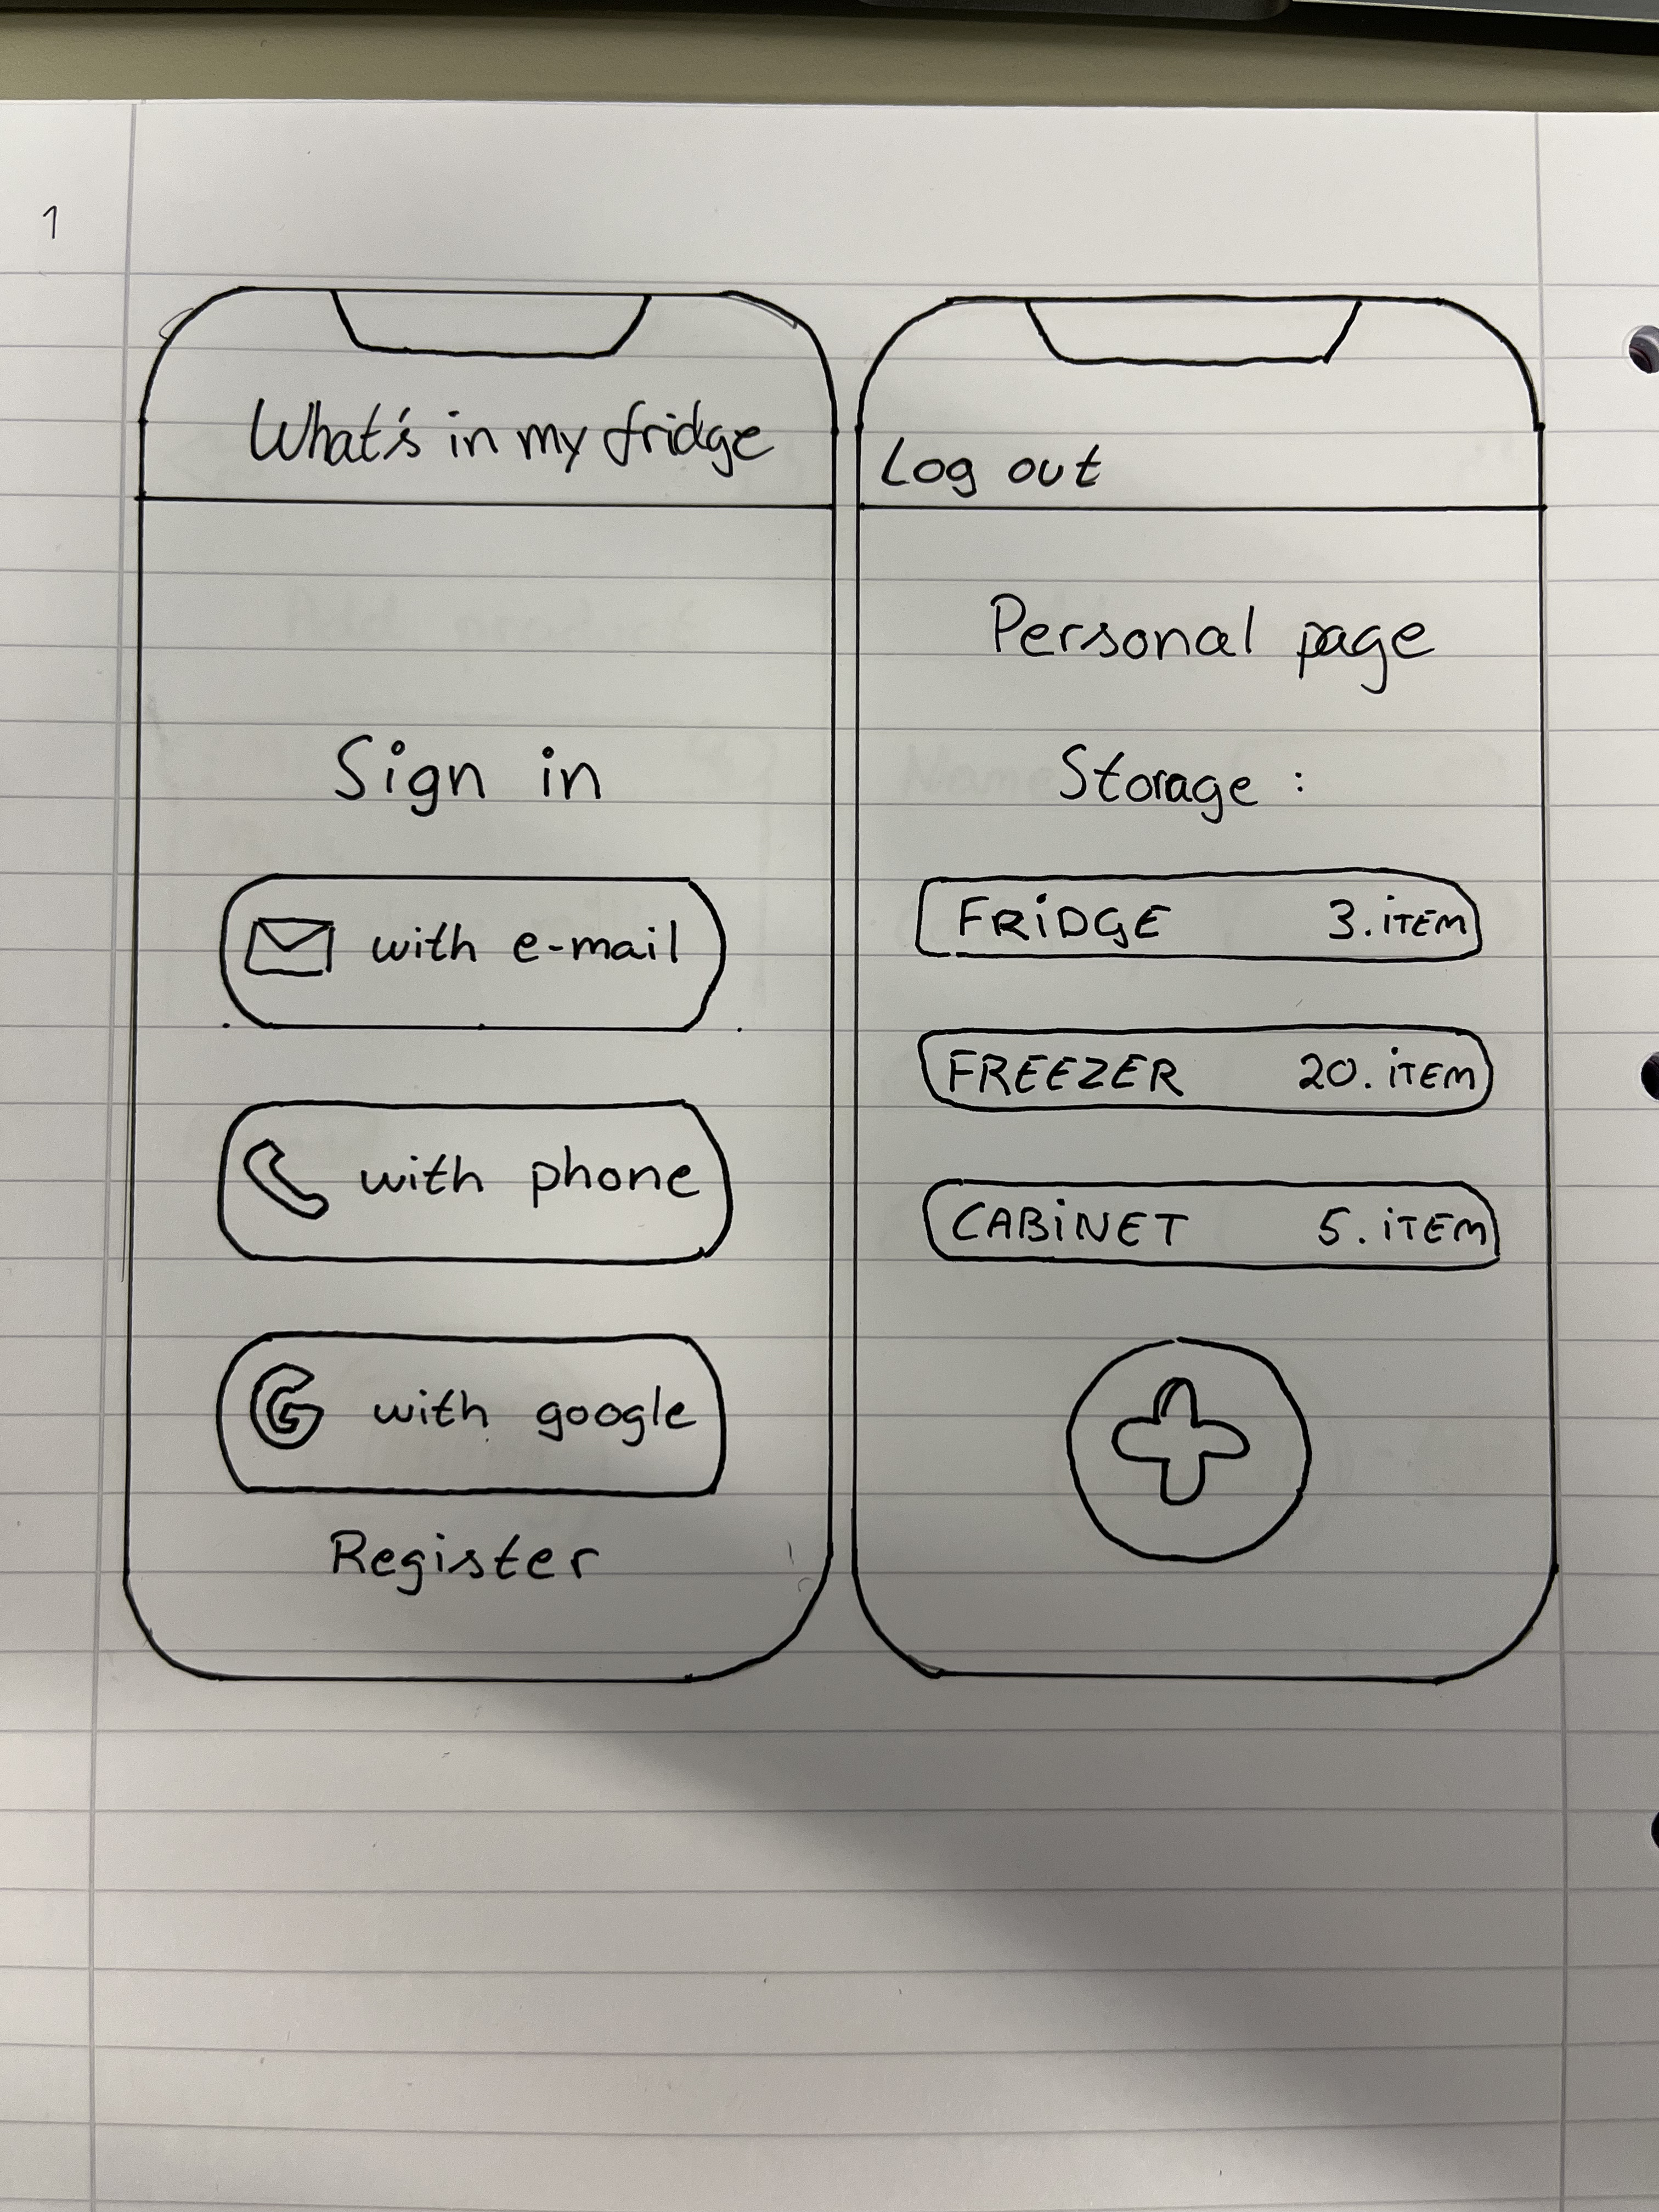 1
What's in my fridge
Sign in
with e-mail
with phone
G with google
Register
Log out
Personal page
Storage :
FRiDGE 3. iTEM
FREEZER 20. iTEM
CABiNET 5. iTEM